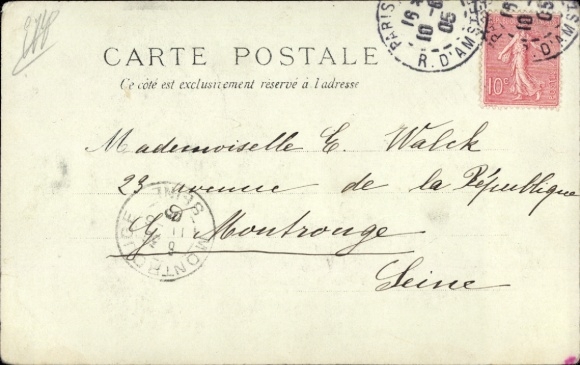 PARIS
16
10 - 6
05
R. D'AMST
10
05
R. D'AMS
10c
CARTE POSTALE
Ce côté est exclusivement réservé à l'adresse
Mademoiselle E. Walck
23 avenue de la République
Gd Montrouge
Seine
MONTROUGE SEINE